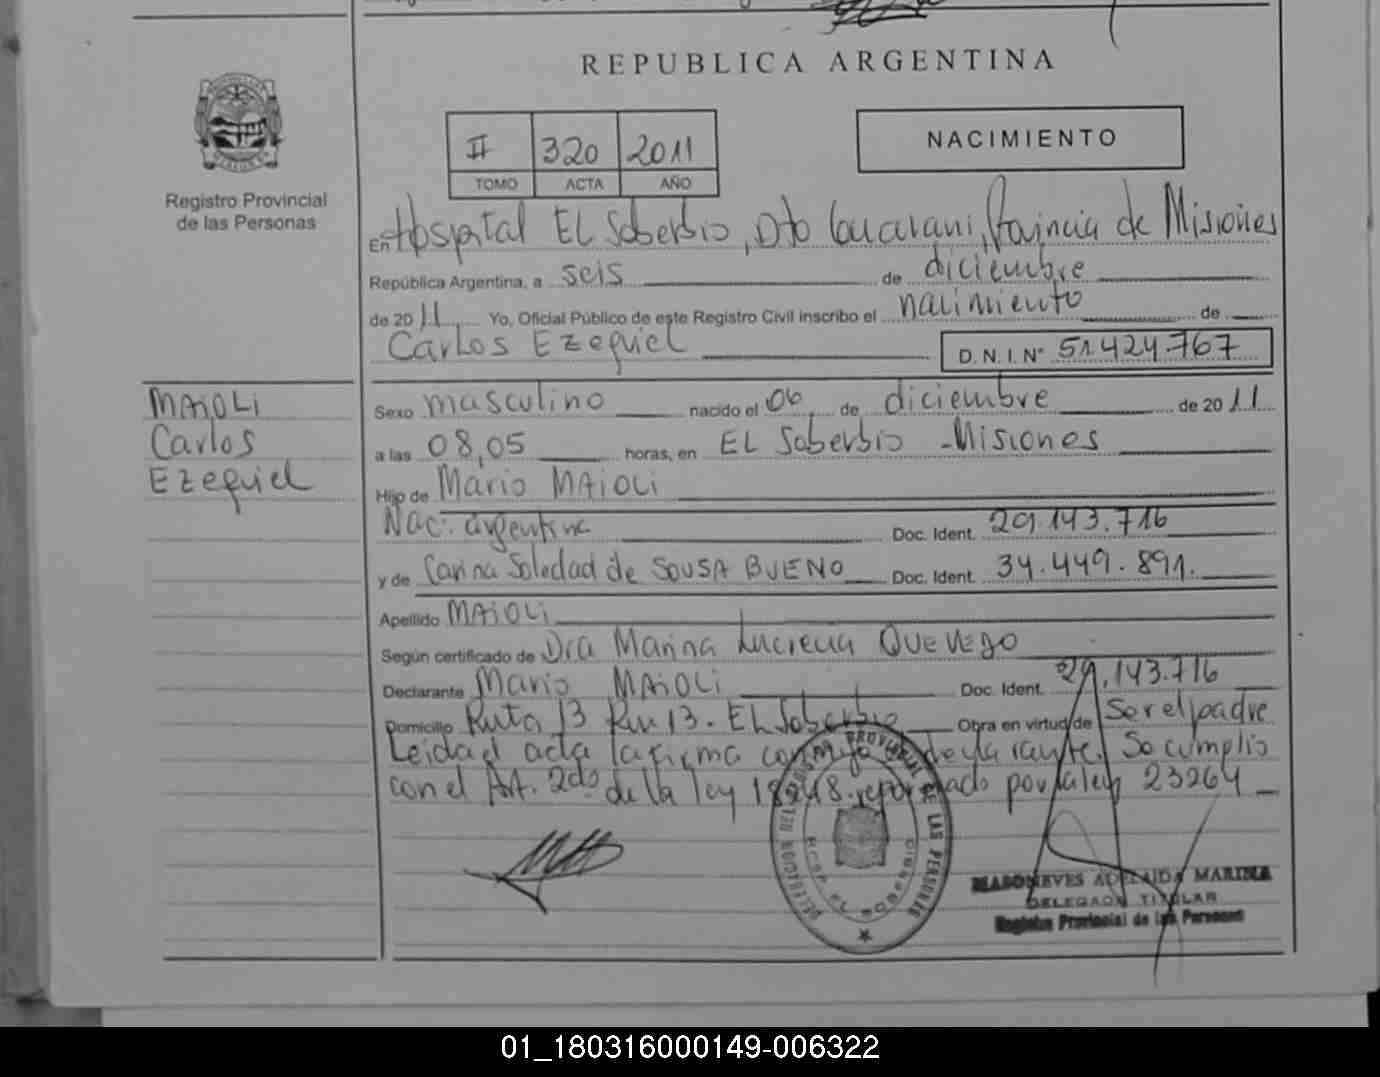 REPUBLICA ARGENTINA
II 320 2011
TOMO ACTA AÑO
NACIMIENTO
Registro Provincial
de las Personas
En Hospital EL Soberbio, Dto Guarani, Provincia de Misiones
República Argentina, a seis de diciembre
de 2011 Yo, Oficial Público de este Registro Civil inscribo el nacimiento de
Carlos Ezequiel D.N.I.N° 51.424.767
MAiOLi
Carlos
Ezequiel
Sexo masculino nacido el 06 de diciembre de 2011
a las 08,05 horas, en EL Soberbio - Misiones
Hijo de Mario MAiOLi
Nac: argentina Doc. Ident. 29.143.716
y de Carina Soledad de SOUSA BUENO Doc. Ident. 34.449.891.
Apellido MAiOLi
Según certificado de Dra Marina Lucrecia QUEVEDO
Declarante Mario MAiOLi Doc. Ident. 29.143.716
Domicilio Ruta 13 Km 13. EL Soberbio Obra en virtud de Ser el padre
Leida el acta la firma conmigo el declarante. Se cumplio
con el Art. 2do de la ley 18248 por la ley 23264
DELEGACION DEL REGISTRO PROVINCIAL DE LAS PERSONAS
EL SOBERBIO
ADELAIDA MARINA
DELEGADA TITULAR
Registro Provincial de las Personas
01_180316000149-006322